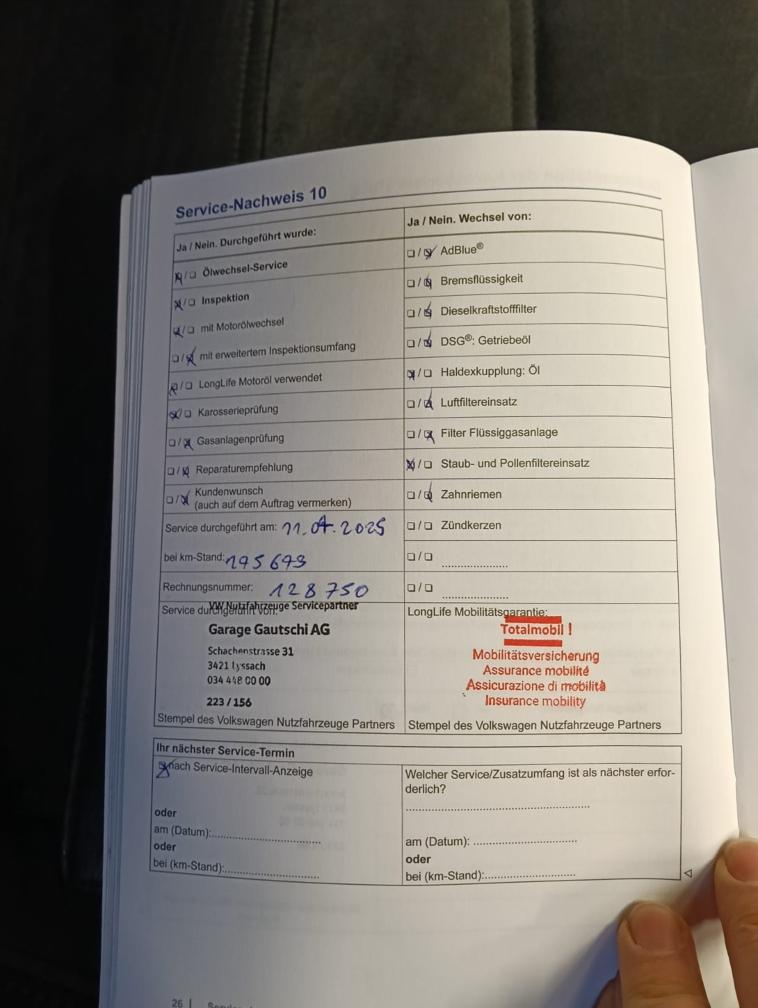 Service-Nachweis 10
Ja / Nein. Durchgeführt wurde:
☒/☐ Ölwechsel-Service
☒/☐ Inspektion
☒/☐ mit Motorölwechsel
☐/☒ mit erweitertem Inspektionsumfang
☒/☐ LongLife Motoröl verwendet
☒/☐ Karosserieprüfung
☐/☒ Gasanlagenprüfung
☐/☒ Reparaturempfehlung
☐/☒ Kundenwunsch
(auch auf dem Auftrag vermerken)
Service durchgeführt am: 11.04.2025
bei km-Stand: 195 693
Rechnungsnummer: 128750
Service durchgeführt von:
VW Nutzfahrzeuge Servicepartner
Garage Gautschi AG
Schachenstrasse 31
3421 Lyssach
034 448 00 00
223 / 156
Stempel des Volkswagen Nutzfahrzeuge Partners
Ja / Nein. Wechsel von:
☐/☒ AdBlue®
☐/☒ Bremsflüssigkeit
☐/☒ Dieselkraftstofffilter
☐/☒ DSG®: Getriebeöl
☒/☐ Haldexkupplung: Öl
☐/☒ Luftfiltereinsatz
☐/☒ Filter Flüssiggasanlage
☒/☐ Staub- und Pollenfiltereinsatz
☐/☒ Zahnriemen
☐/☐ Zündkerzen
☐/☐ ....................
☐/☐ ....................
LongLife Mobilitätsgarantie:
Totalmobil !
Mobilitätsversicherung
Assurance mobilité
Assicurazione di mobilità
Insurance mobility
Stempel des Volkswagen Nutzfahrzeuge Partners
Ihr nächster Service-Termin
☒ nach Service-Intervall-Anzeige
oder
am (Datum):..............................
oder
bei (km-Stand):..........................
Welcher Service/Zusatzumfang ist als nächster erfor-
derlich?
..................................................
am (Datum): ............................
oder
bei (km-Stand):.........................
26 |